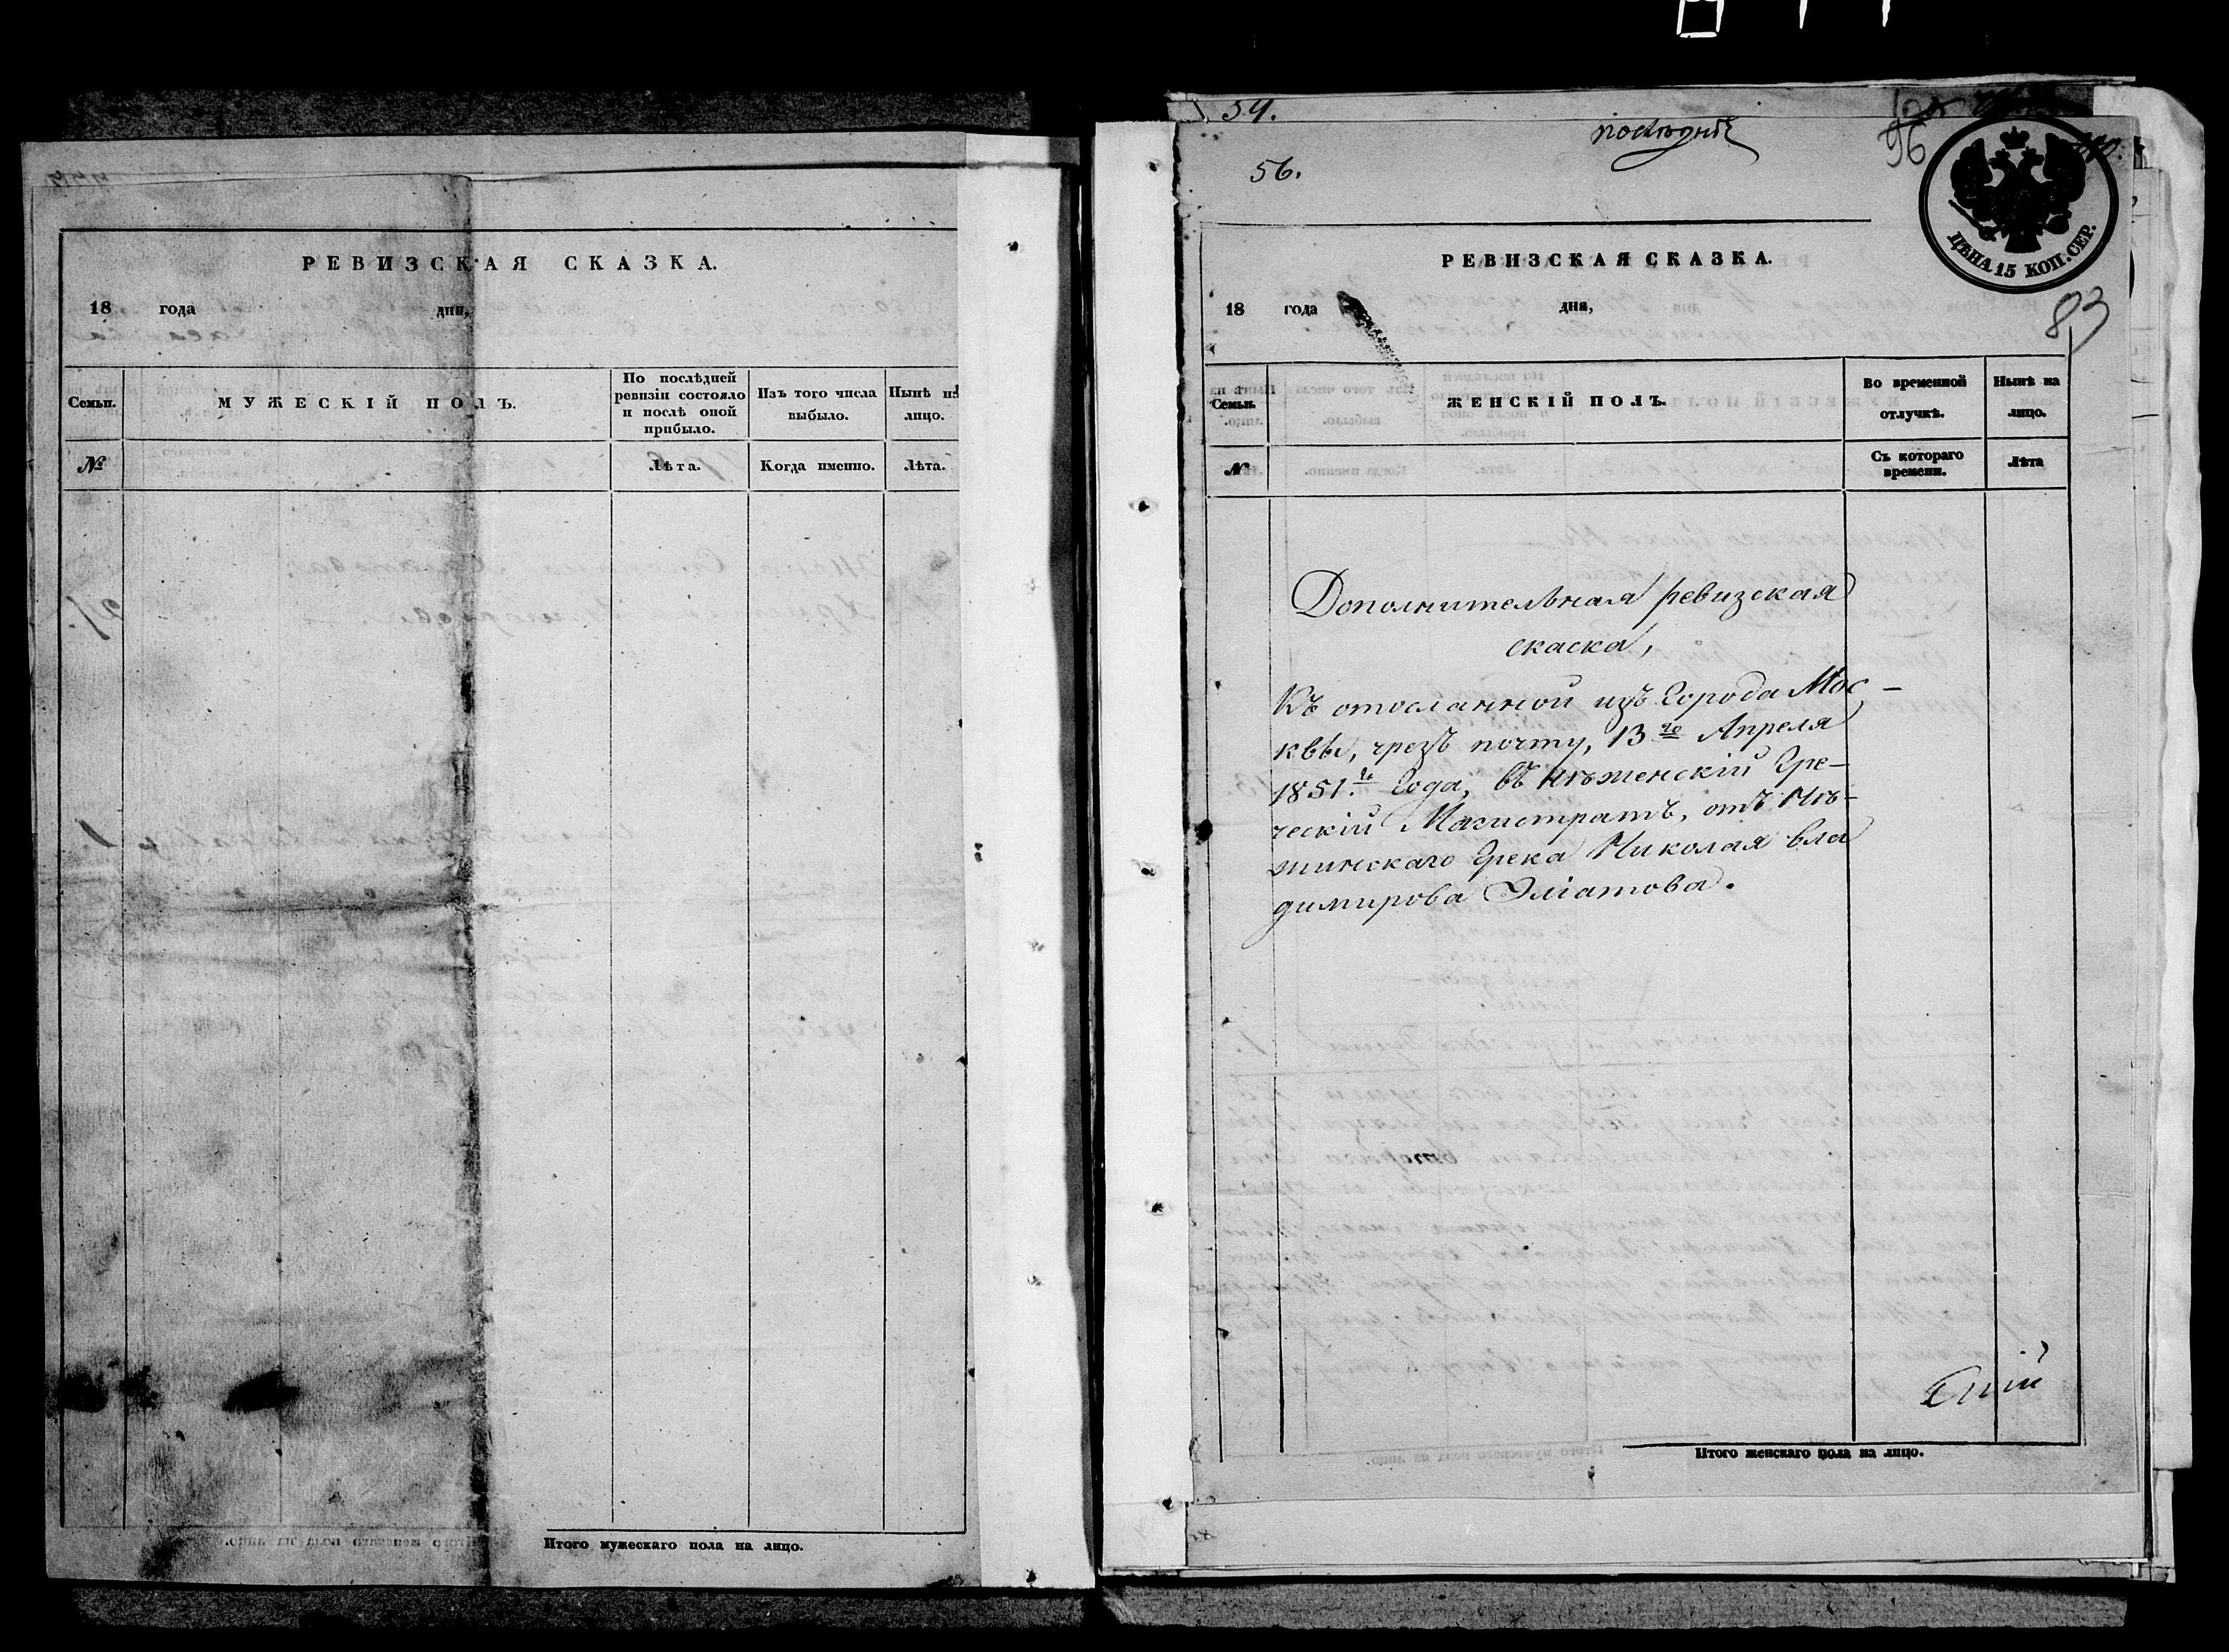 РЕВИЗСКАЯ СКАЗКА.
18 года дня,
Семьи.
МУЖЕСКІЙ ПОЛЪ.
По послѣдней
ревизіи состояло
и послѣ оной
прибыло.
Изъ того числа
выбыло.
Нынѣ на
лицо.
№
Лѣта.
Когда именно.
Лѣта.
Итого мужескаго пола на лицо.
54.
56.
96
ЦѢНА 15 КОП. СЕР.
РЕВИЗСКАЯ СКАЗКА.
83
18 года дня,
Семьи.
ЖЕНСКІЙ ПОЛЪ.
Во временной
отлучкѣ.
Нынѣ на
лицо.
№
Съ котораго
времени.
Лѣта
Дополнительная ревизская
скаска,
Къ отосланной изъ Города Мос-
квы, чрезъ почту, 13го Апреля
1851.го Года, въ Нѣженскій Гре-
ческій Магистратъ, отъ Нѣ-
жинскаго Грека Николая Вла
димирова Эліатова.
Итого женскаго пола на лицо.